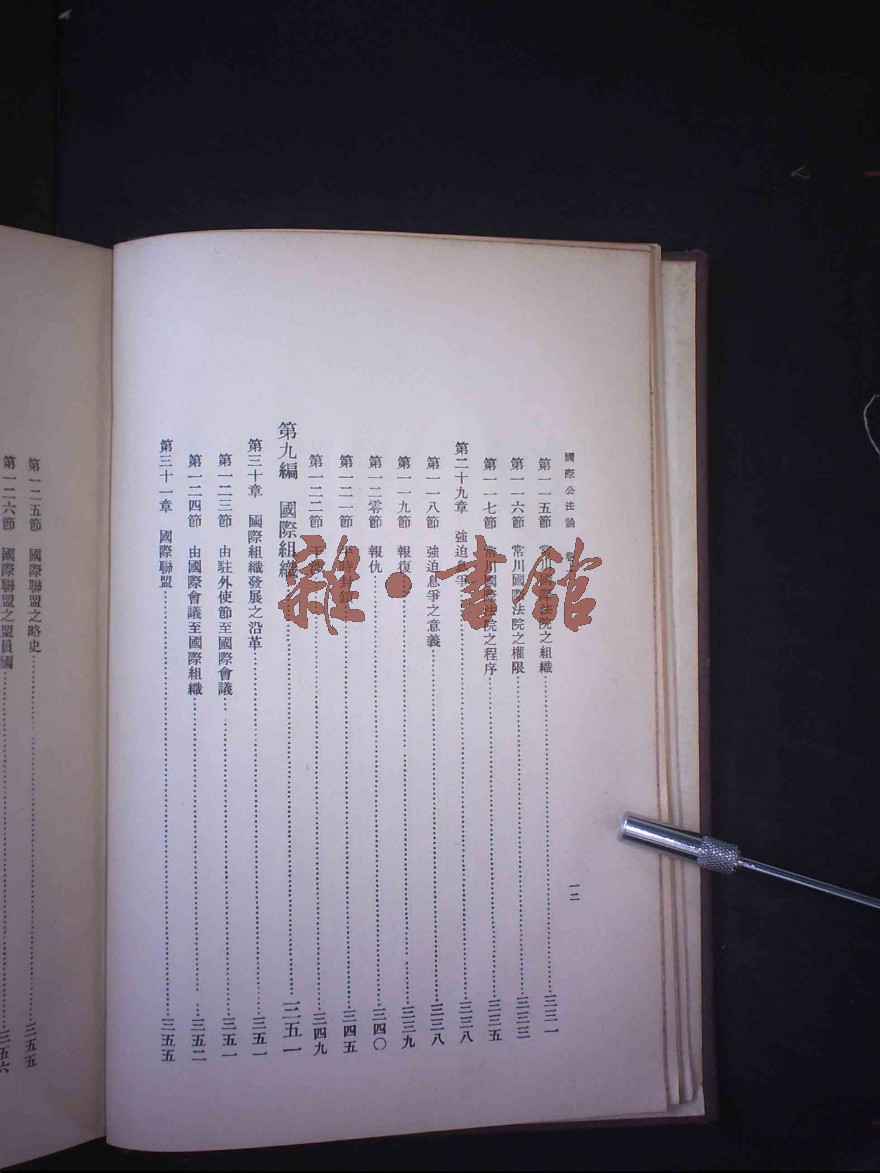 國際公法論
一二
第一一五節 常川國際法院之組織 三三一
第一一六節 常川國際法院之權限 三三三
第一一七節 常川國際法院之程序 三三五
第二十九章 強迫息爭 三三八
第一一八節 強迫息爭之意義 三三八
第一一九節 報復 三三九
第一二零節 報仇 三四〇
第一二一節 平時封鎖 三四五
第一二二節 干涉 三四九
第九編 國際組織 三五一
第三十章 國際組織發展之沿革 三五一
第一二三節 由駐外使節至國際會議 三五一
第一二四節 由國際會議至國際組織 三五二
第三十一章 國際聯盟 三五五
第一二五節 國際聯盟之略史 三五五
第一二六節 國際聯盟之盟員國 三五六
雜·書館